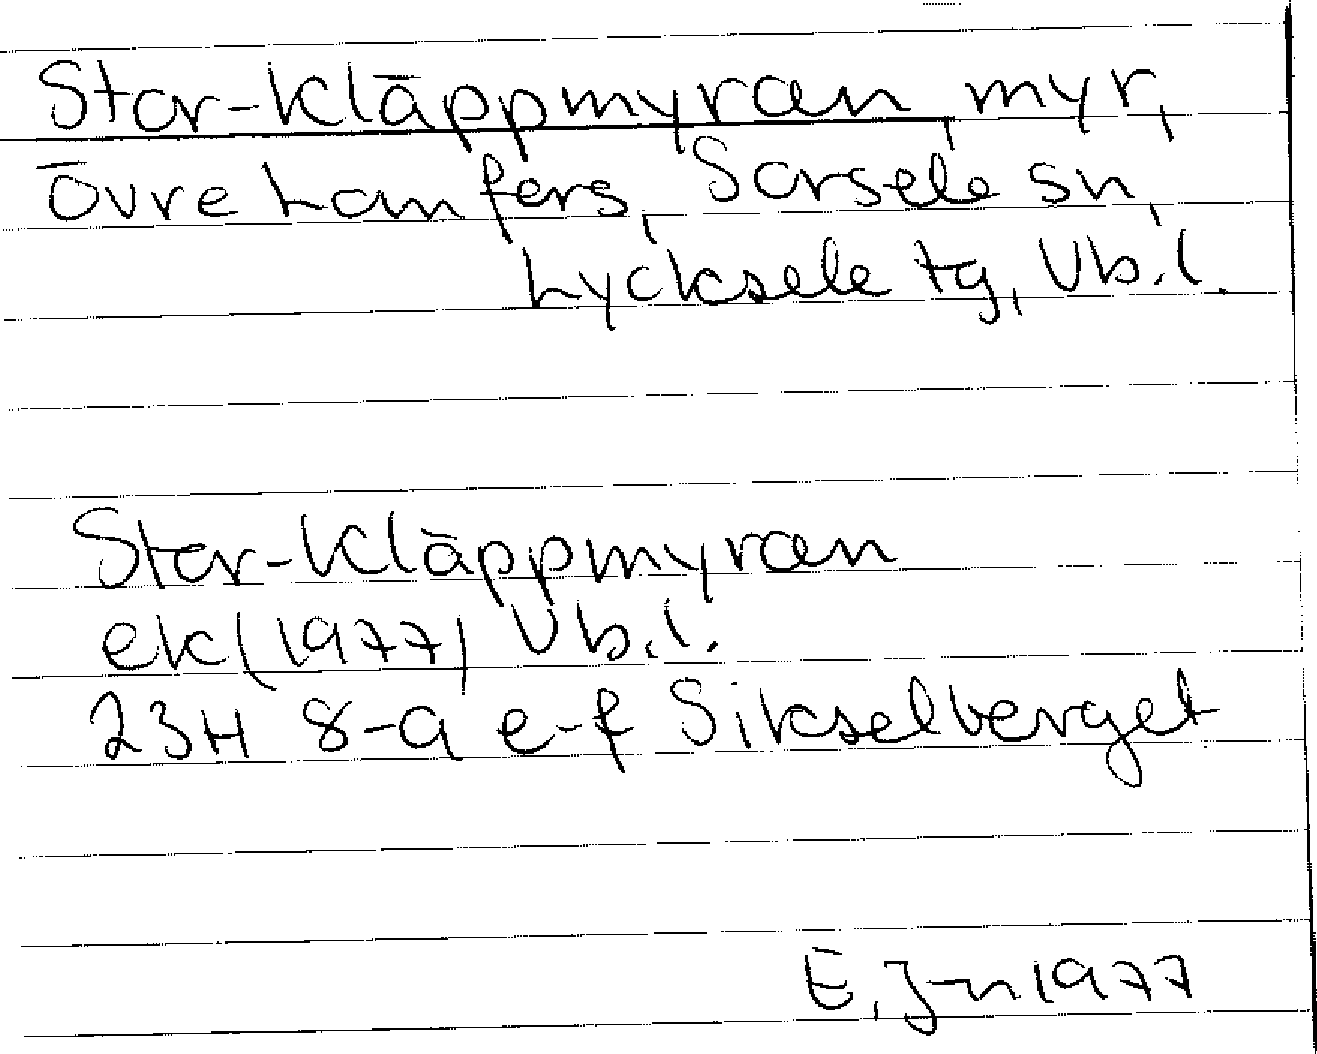 Stor-Kläppmyran, myr,
Övre Lamfors, Sorsele sn,
Lycksele tg, Vb.l.
Stor-Kläppmyran
ek (1977) Vb.l.
23H 8-9 e-f Sikselberget
E. J-n 1977